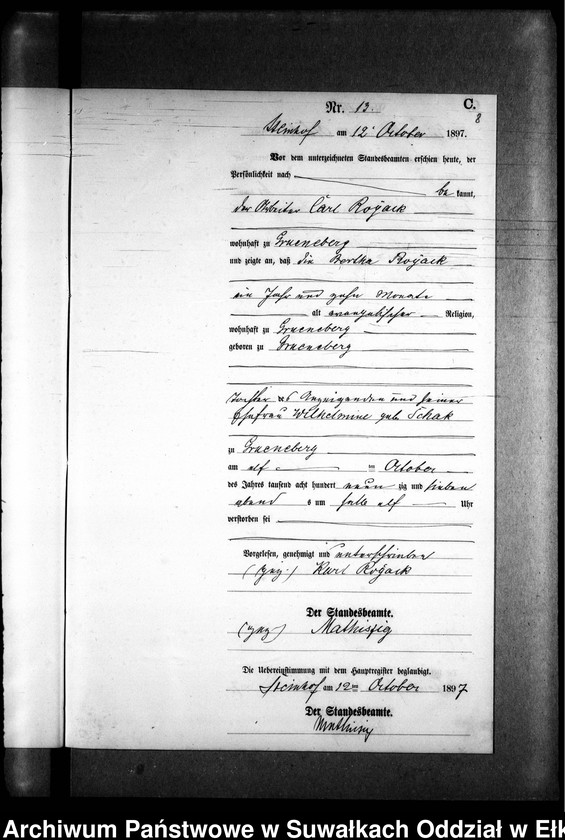 Nr. 13.
C.
8
Steinhof am 12. October 1897.
Vor dem unterzeichneten Standesbeamten erschien heute, der
Persönlichkeit nach
be kannt,
der Arbeiter Carl Royack
wohnhaft zu Grueneberg
und zeigte an, daß die Bertha Royack
ein Jahr und zehn Monate
alt evangelischer Religion,
wohnhaft zu Grueneberg
geboren zu Grueneberg
Tochter des Anzeigenden und seiner
Ehefrau Wilhelmine geb. Schak
zu Grueneberg
am elf ten October
des Jahres tausend acht hundert neun zig und sieben
abend s um halb elf Uhr
verstorben sei
Vorgelesen, genehmigt und unterschrieben
(gez.) Karl Royack
Der Standesbeamte.
(gez) Mathiszig
Die Uebereinstimmung mit dem Hauptregister beglaubigt.
Steinhof am 12ten October 1897
Der Standesbeamte.
Mathiszig
Archiwum Państwowe w Suwałkach Oddział w Ełk